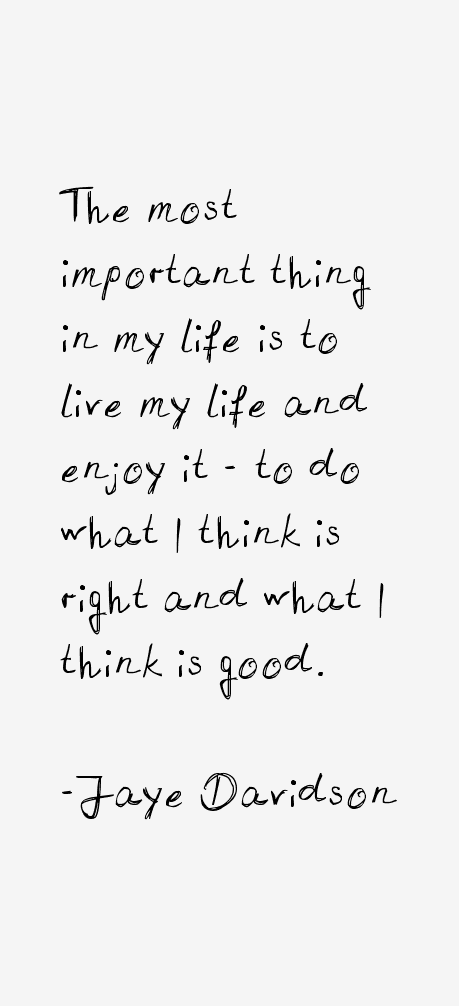 The most
important thing
in my life is to
live my life and
enjoy it - to do
what I think is
right and what I
think is good.
-Jaye Davidson